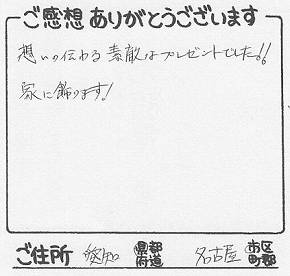 ご感想ありがとうございます
想いの伝わる素敵なプレゼントでした!!
家に飾ります!
ご住所 愛知 都道府県 名古屋 市区町郡